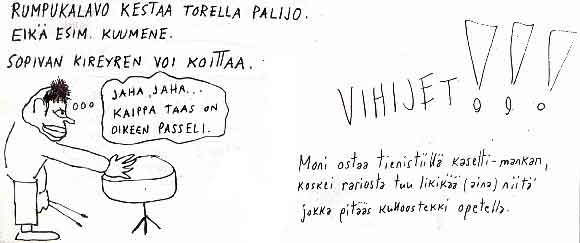 RUMPUKALAVO KESTAA TORELLA PALIJO.
EIKÄ ESIM. KUUMENE.
SOPIVAN KIREYREN VOI KOITTAA.
JAHA, JAHA...
KAIPPA TAAS ON
OIKEEN PASSELI.
VIHIJET!!!
Moni ostaa tienistillä kasetti-mankan,
koskei rariosta tuu likikää (aina) niitä
jokka pitääs opetella.